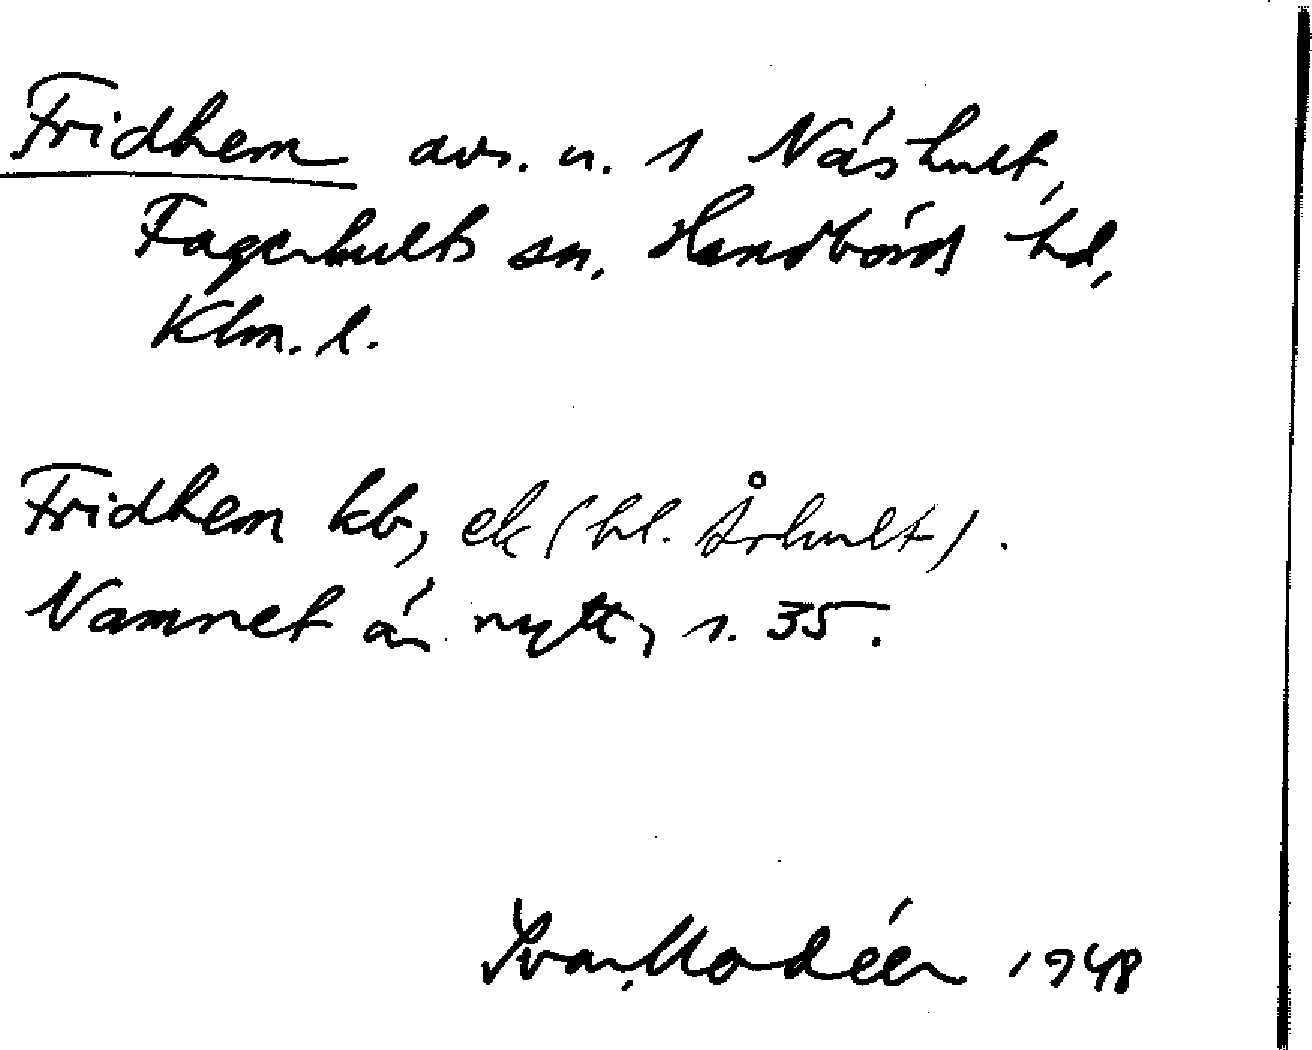 Fridhem avs. u. 1 Näshult,
Fagerhults sn, Handbörds hd,
Klm. l.
Fridhem kb, ek (bl. Århult).
Namnet är nytt, s. 35.
Ivar Modéer 1948